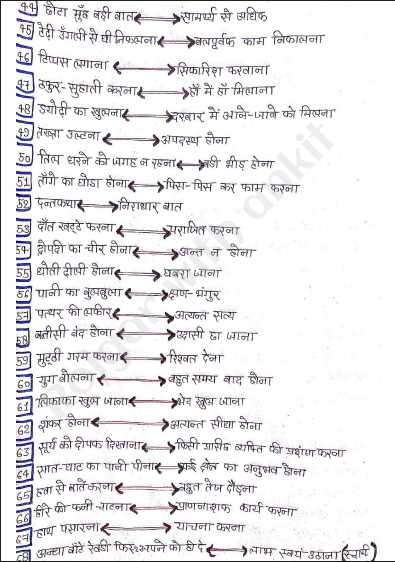 44 छोटा मुँह बड़ी बात ↔ सामर्थ्य से अधिक
45 टेढ़ी उँगली से घी निकालना ↔ बलपूर्वक काम निकालना
46 टिप्पस लगाना ↔ सिफारिश करवाना
47 ठकुर-सुहाती करना ↔ हाँ में हाँ मिलाना
48 ड्योढ़ी का खुलना ↔ दरबार में आने-जाने को मिलना
49 तख्ता उल्टना ↔ अपदस्थ होना
50 तिल धरने को जगह न रहना ↔ बड़ी भीड़ होना
51 ताँगे का घोड़ा होना ↔ पिस-पिस कर काम करना
52 दन्तकथा ↔ निराधार बात
53 दाँत खट्टे करना ↔ पराजित करना
54 द्रोपदी का चीर होना ↔ अन्त न होना
55 धोती ढीली होना ↔ घबरा जाना
56 पानी का बुलबुला ↔ क्षण-भंगुर
57 पत्थर की लकीर ↔ अत्यन्त सत्य
58 बतीसी बंद होना ↔ उदासी छा जाना
59 मुट्ठी गरम करना ↔ रिश्वत देना
60 युग बीतना ↔ बहुत समय बाद होना
61 लिफाफा खुल जाना ↔ भेद खुल जाना
62 शंकर होना ↔ अत्यन्त सीधा होना
63 सूर्य को दीपक दिखाना ↔ किसी प्रसिद्ध व्यक्ति की प्रशंसा करना
64 सात-घाट का पानी पीना ↔ कई क्षेत्र का अनुभव होना
65 हवा से बातें करना ↔ बहुत तेज दौड़ना
66 हीरे की कनी चाटना ↔ प्राणनाशक कार्य करना
67 हाथ पसारना ↔ याचना करना
68 अन्धा बाँटे रेवड़ी फिर अपने को ही दे ↔ लाभ स्वयं उठाना (स्वार्थ)